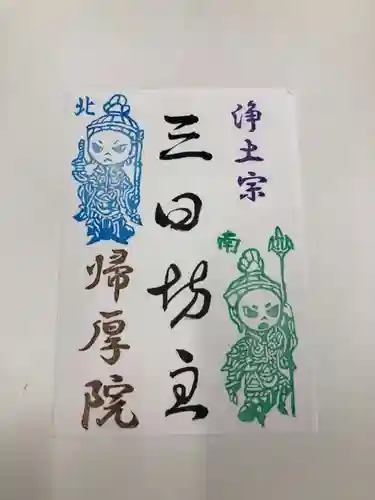 浄土宗
南
三日坊主
北
帰厚院